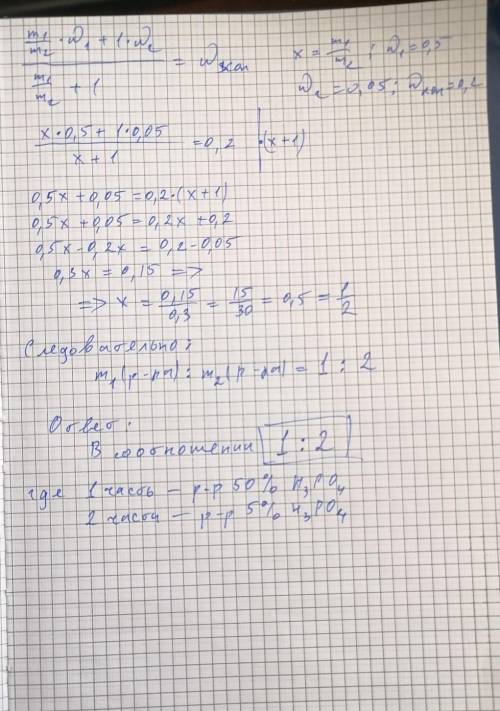 m₁/m₂ · ω₁ + 1 · ω₂ / m₁/m₂ + 1 = ω кон
x = m₁/m₂ ; ω₁ = 0,5
ω₂ = 0,05 ; ω кон = 0,2
x · 0,5 + 1 · 0,05 / x + 1 = 0,2 | · (x + 1)
0,5x + 0,05 = 0,2 · (x + 1)
0,5x + 0,05 = 0,2x + 0,2
0,5x - 0,2x = 0,2 - 0,05
0,3x = 0,15 =>
=> x = 0,15/0,3 = 15/30 = 0,5 = 1/2
Следовательно:
m₁(р-ра) : m₂(р-ра) = 1 : 2
Ответ:
В соотношении 1 : 2
где 1 часть – р-р 50% H₃PO₄
2 части – р-р 5% H₃PO₄